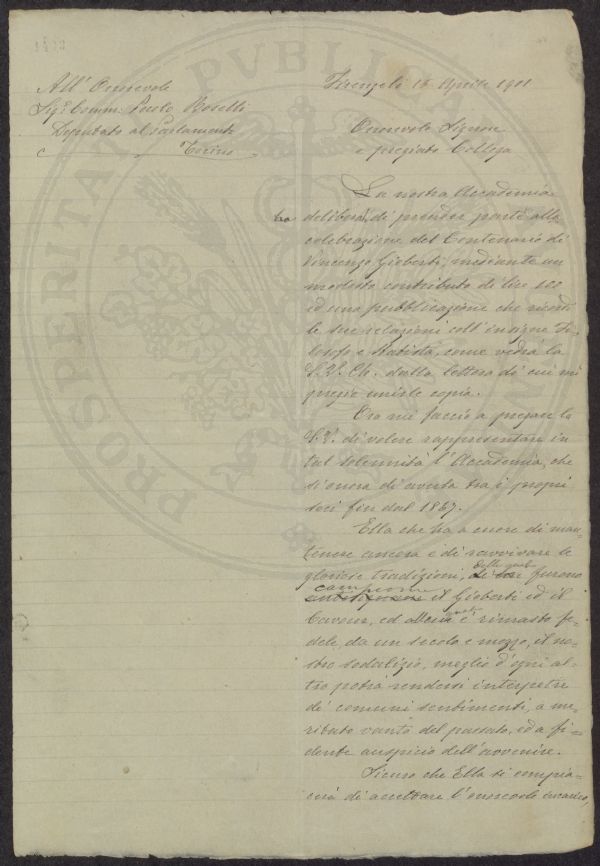 All' Onorevole
Sig. Comm. Paolo Boselli
Deputato al Parlamento
Torino
Firenze li 15 Aprile 1901
Onorevole Signore
e pregiato Collega
La nostra Accademia
ha deliberà di prendere parte alla
celebrazione del Centenario di
Vincenzo Gioberti, mediante un
modesto contributo di lire 100
ed una pubblicazione che ricordi
le sue relazioni coll'insigne fi-
losofo e statista, come vedrà la
S.V. Ch. dalla lettera di cui mi
pregio unirle copia.
Ora mi faccio a pregare la
S.V. di volere rappresentare in
tal solennità l'Accademia, che
si onora di averla tra i propri
soci fin dal 1867.
Ella che ha a cuore di man-
tenere ancora e di ravvivare le
gloriose tradizioni, delle quali furono
campioni il Gioberti ed il
Cavour, ed alle quali è rimasto fe-
dele, da un secolo e mezzo, il no-
stro sodalizio, meglio d'ogni al-
tro potrà rendersi interprete
di comuni sentimenti, a me-
ritato vanto del passato, ed a fi-
dente auspicio dell'avvenire.
Sicuro che Ella si compia-
cerà di accettare l'onorevole incarico,
PROSPERITATI PVBLICAE